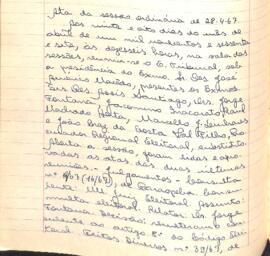 Ata da sessão ordinária de 28-4-67.
Aos vinte e oito dias do mês de
abril de um mil novecentos e sessenta
e sete, às dezesseis horas, na sala das
sessões, reuniu-se o E. Tribunal, sob
a presidência do Exmo. Sr. Des. José
Antonio Macêdo, presentes os Exmos.
Srs. Des. Assis Santiago, Drs. Jorge
Fontana, Jacomino Inacarato, Raul
Machado Horta, Marcello Linhares
e João Braz da Costa Val Filho, Pro-
curador Regional Eleitoral, substituto.
Aberta a sessão, foram lidas e apro-
vadas as atas das duas últimas
reuniões. Julgamentos: Consulta
nº 67 (16/67), de Carangola. Consu-
lente: MM. Juiz Eleitoral. Assunto:
consulta eleitoral. Relator: Dr. Jorge
Fontana. Decisão:
ao artigo 8º do Código Elei-
toral. Feitos Diversos nº 39/67, de